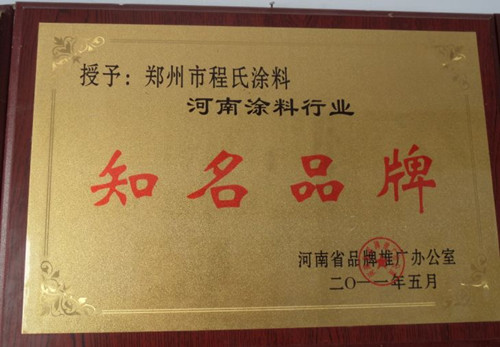 授予：郑州市程氏涂料
河南涂料行业
知名品牌
河南省品牌推广办公室
二〇一一年五月